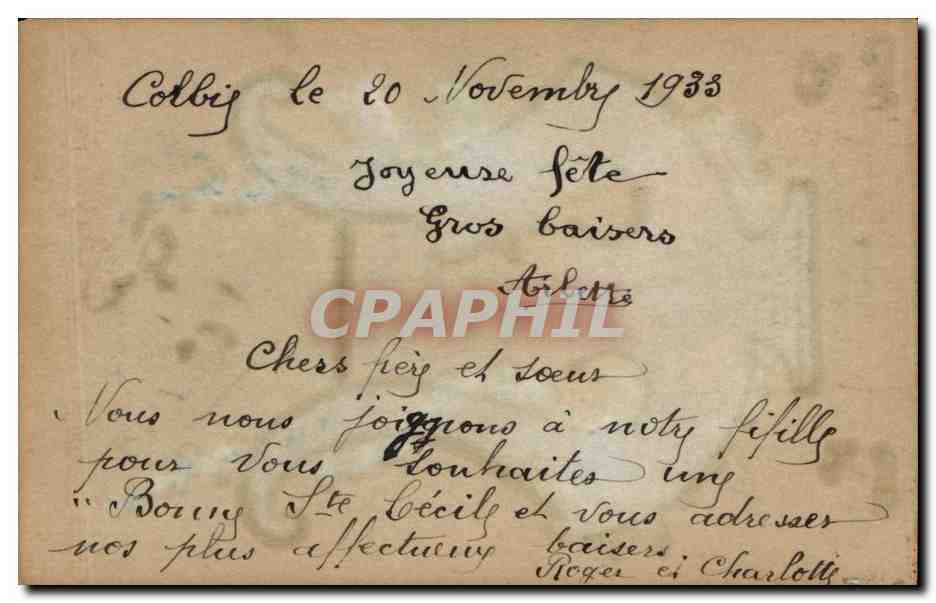 le 20 Novembre 1933
Joyeuse fête
Gros baisers
Arlette
CPAPHIL
Chers frère et soeur
Nous nous joignons à notre fifille
pour vous souhaiter une
"Bonne Ste Cécile et vous adresser
nos plus affectueux baisers
Roger et Charlotte